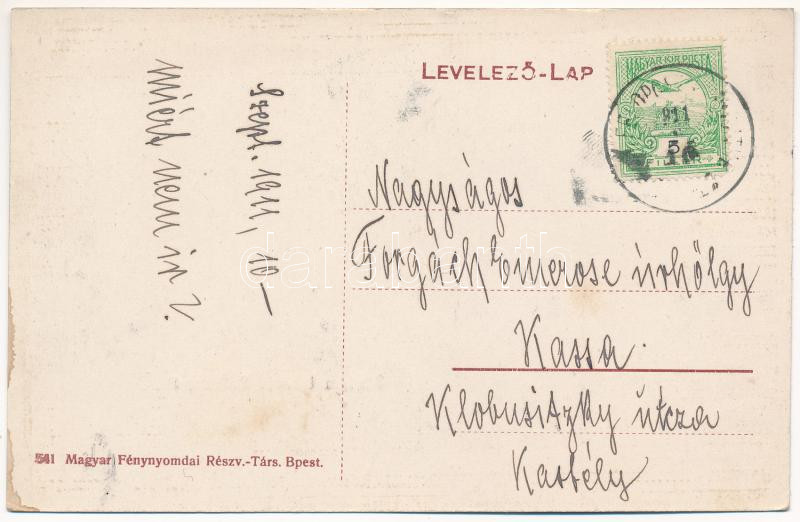 LEVELEZŐ-LAP
MAGYAR·KIR·POSTA
911
5
Szept. 1911, 10–
Miért nem ir?
Nagyságos
Forgách Emerose úrhölgy
Kassa.
Klobusitzky útcza
Kastély
541 Magyar Fénynyomdai Részv.-Társ. Bpest.
darabanth